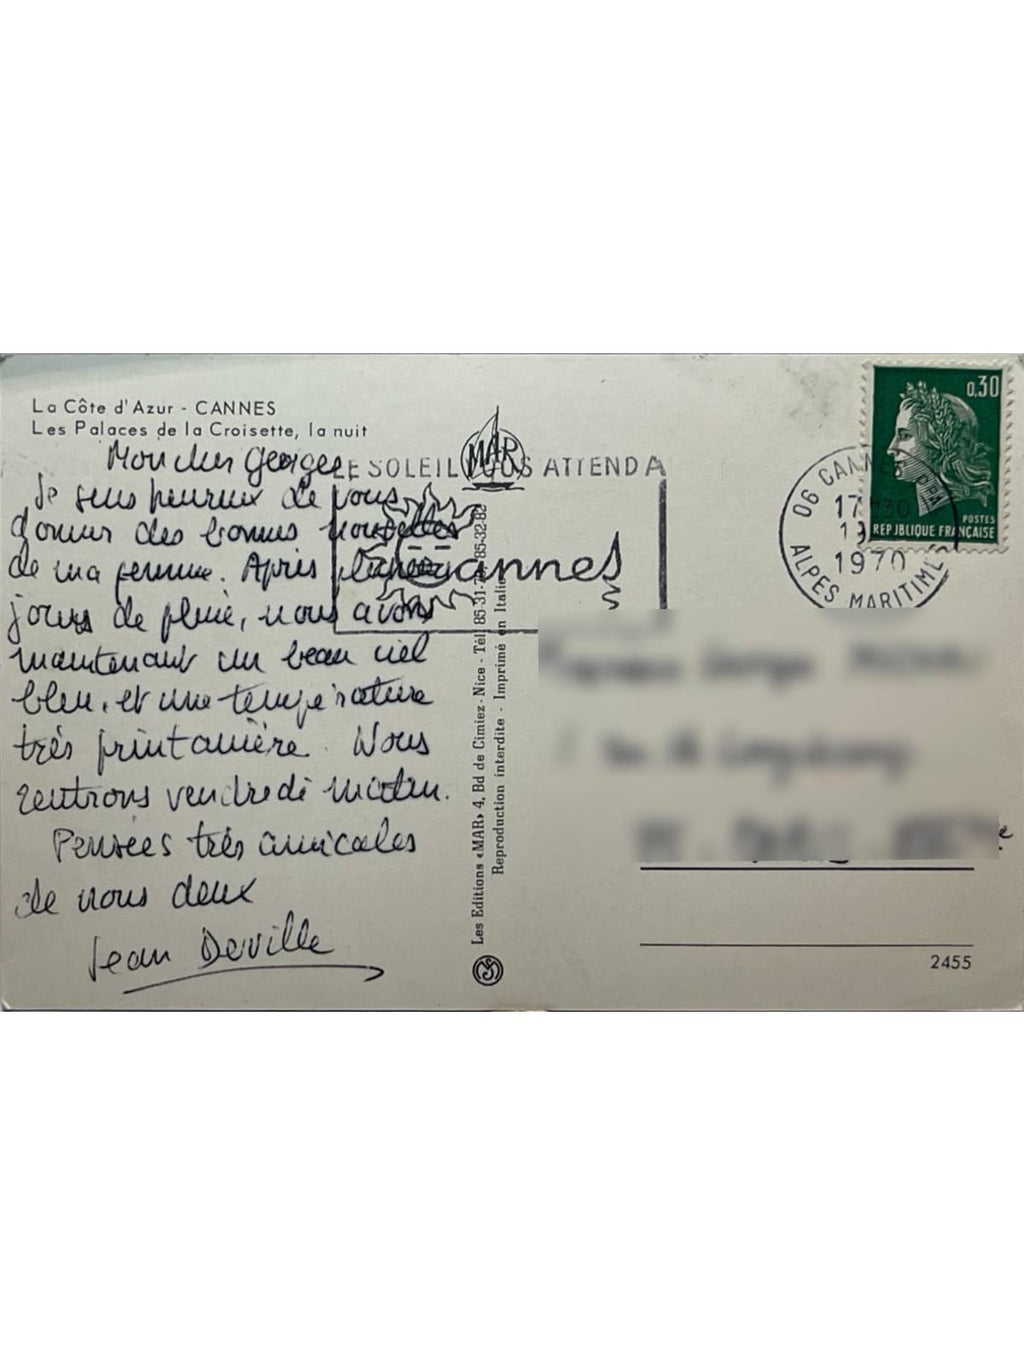 La Côte d'Azur - CANNES
Les Palaces de la Croisette, la nuit
Mon cher Georges
Je suis heureux de vous
donner des bonnes nouvelles
de ma femme. Après plusieurs
jours de pluie, nous avons
maintenant un beau ciel
bleu, et une température
très printanière. Nous
rentrons vendredi matin.
Pensées très amicales
de nous deux
Jean Deville
MAR
LE SOLEIL VOUS ATTEND A
Cannes
Les Editions «MAR» 4, Bd de Cimiez - Nice - Tél. 85-31- 85-32-82
Reproduction interdite - Imprimé en Italie
0,30
POSTES
REPUBLIQUE FRANÇAISE
06 CANNES
17 H30
1970
ALPES MARITIMES
2455